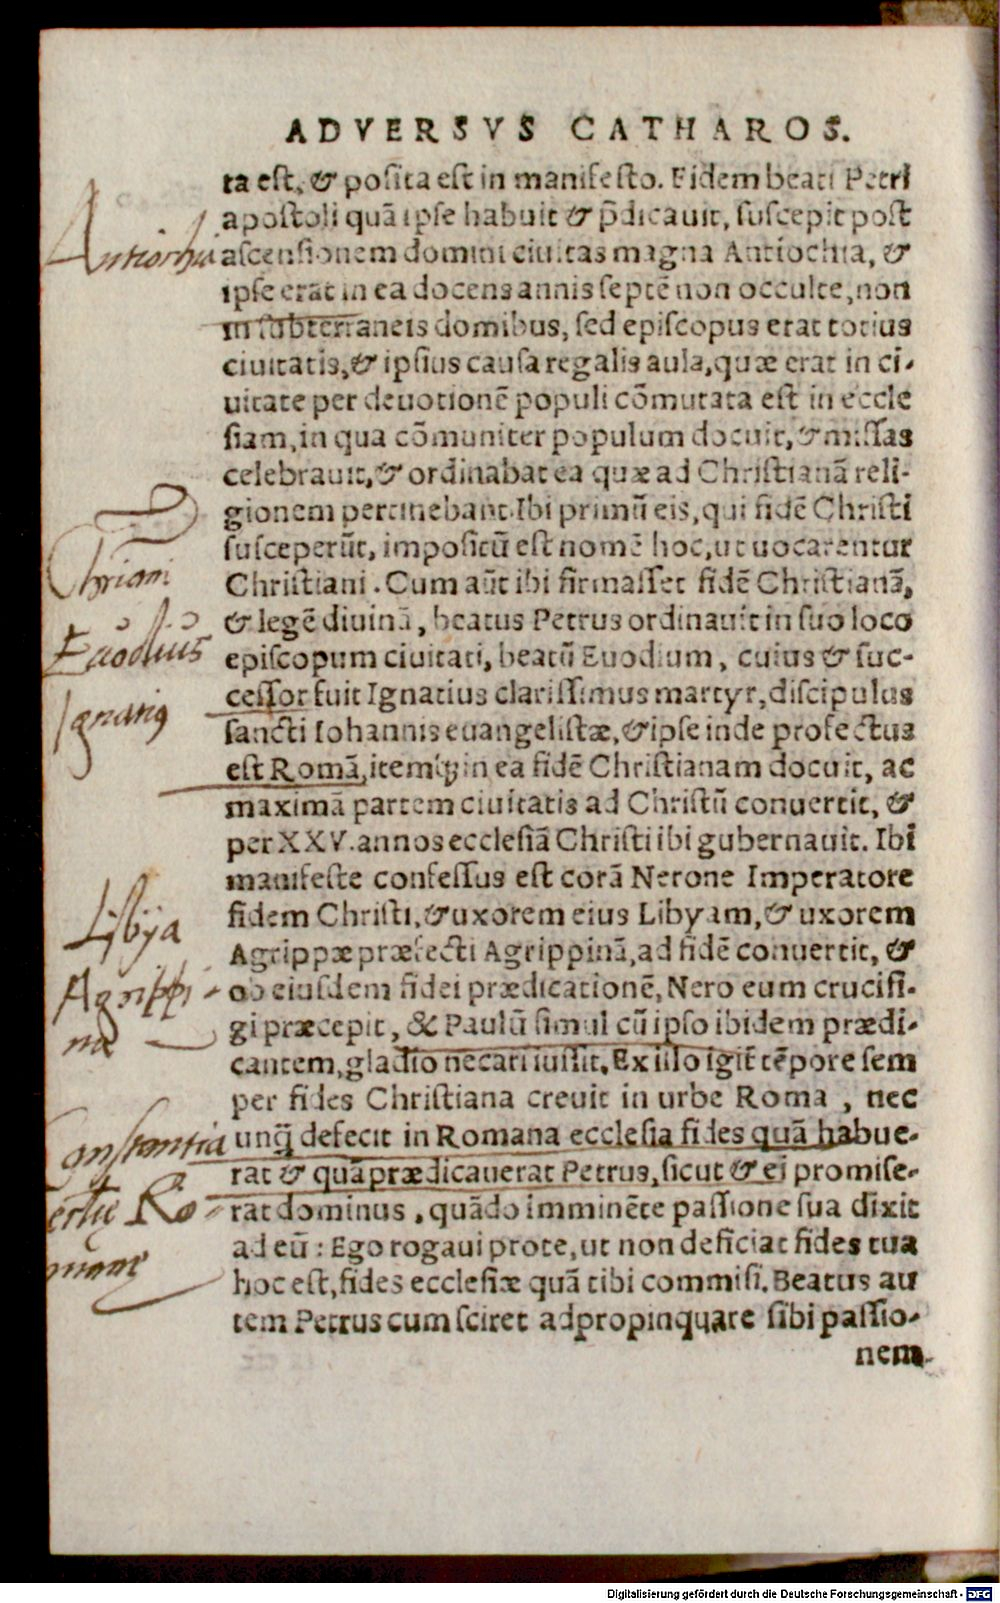 ADVERSVS CATHAROS.
ta est, & posita est in manifesto. Fidem beati Petri
apostoli quā ipse habuit & p̄dicauit, suscepit post
Antiochia
ascensionem domini ciuitas magna Antiochia, &
ipse erat in ea docens annis septē non occulte, non
in subterraneis domibus, sed episcopus erat totius
ciuitatis, & ipsius causa regalis aula, quæ erat in ci-
uitate per deuotionē populi cōmutata est in eccle
siam, in qua cōmuniter populum docuit, & missas
celebrauit, & ordinabat ea quæ ad Christianā reli-
gionem pertinebant. Ibi primū eis, qui fidē Christi
susceperūt, impositū est nomē hoc, ut uocarentur
Chriani
Christiani. Cum aūt ibi firmasset fidē Christianā,
& legē diuinā, beatus Petrus ordinauit in suo loco
Euodius
episcopum ciuitati, beatū Euodium, cuius & suc-
Ignatiꝰ
cessor fuit Ignatius clarissimus martyr, discipulus
sancti Iohannis euangelistæ, & ipse inde profectus
est Romā, itemq́ꝫ in ea fidē Christianam docuit, ac
maximā partem ciuitatis ad Christū conuertit, &
per XXV. annos ecclesiā Christi ibi gubernauit. Ibi
manifeste confessus est corā Nerone Imperatore
Lybya
fidem Christi, & uxorem eius Libyam, & uxorem
Agrippæ præfecti Agrippinā, ad fidē conuertit, &
Agrippi-
na
ob eiusdem fidei prædicationē, Nero eum crucifi-
gi præcepit, & Paulū simul cū ipso ibidem prædi-
cantem, gladio necari iussit. Ex illo igit̄ tēpore sem
per fides Christiana creuit in urbe Roma, nec
Constantia
unq̄ defecit in Romana ecclesia fides quā habue-
rat & quā prædicauerat Petrus, sicut & ei promise-
rat dominus, quādo imminēte passione sua dixit
ad eū: Ego rogaui pro te, ut non deficiat fides tua
hoc est, fides ecclesiæ quā tibi commisi. Beatus au
tem Petrus cum sciret adpropinquare sibi passio-
nem
Digitalisierung gefördert durch die Deutsche Forschungsgemeinschaft - DFG